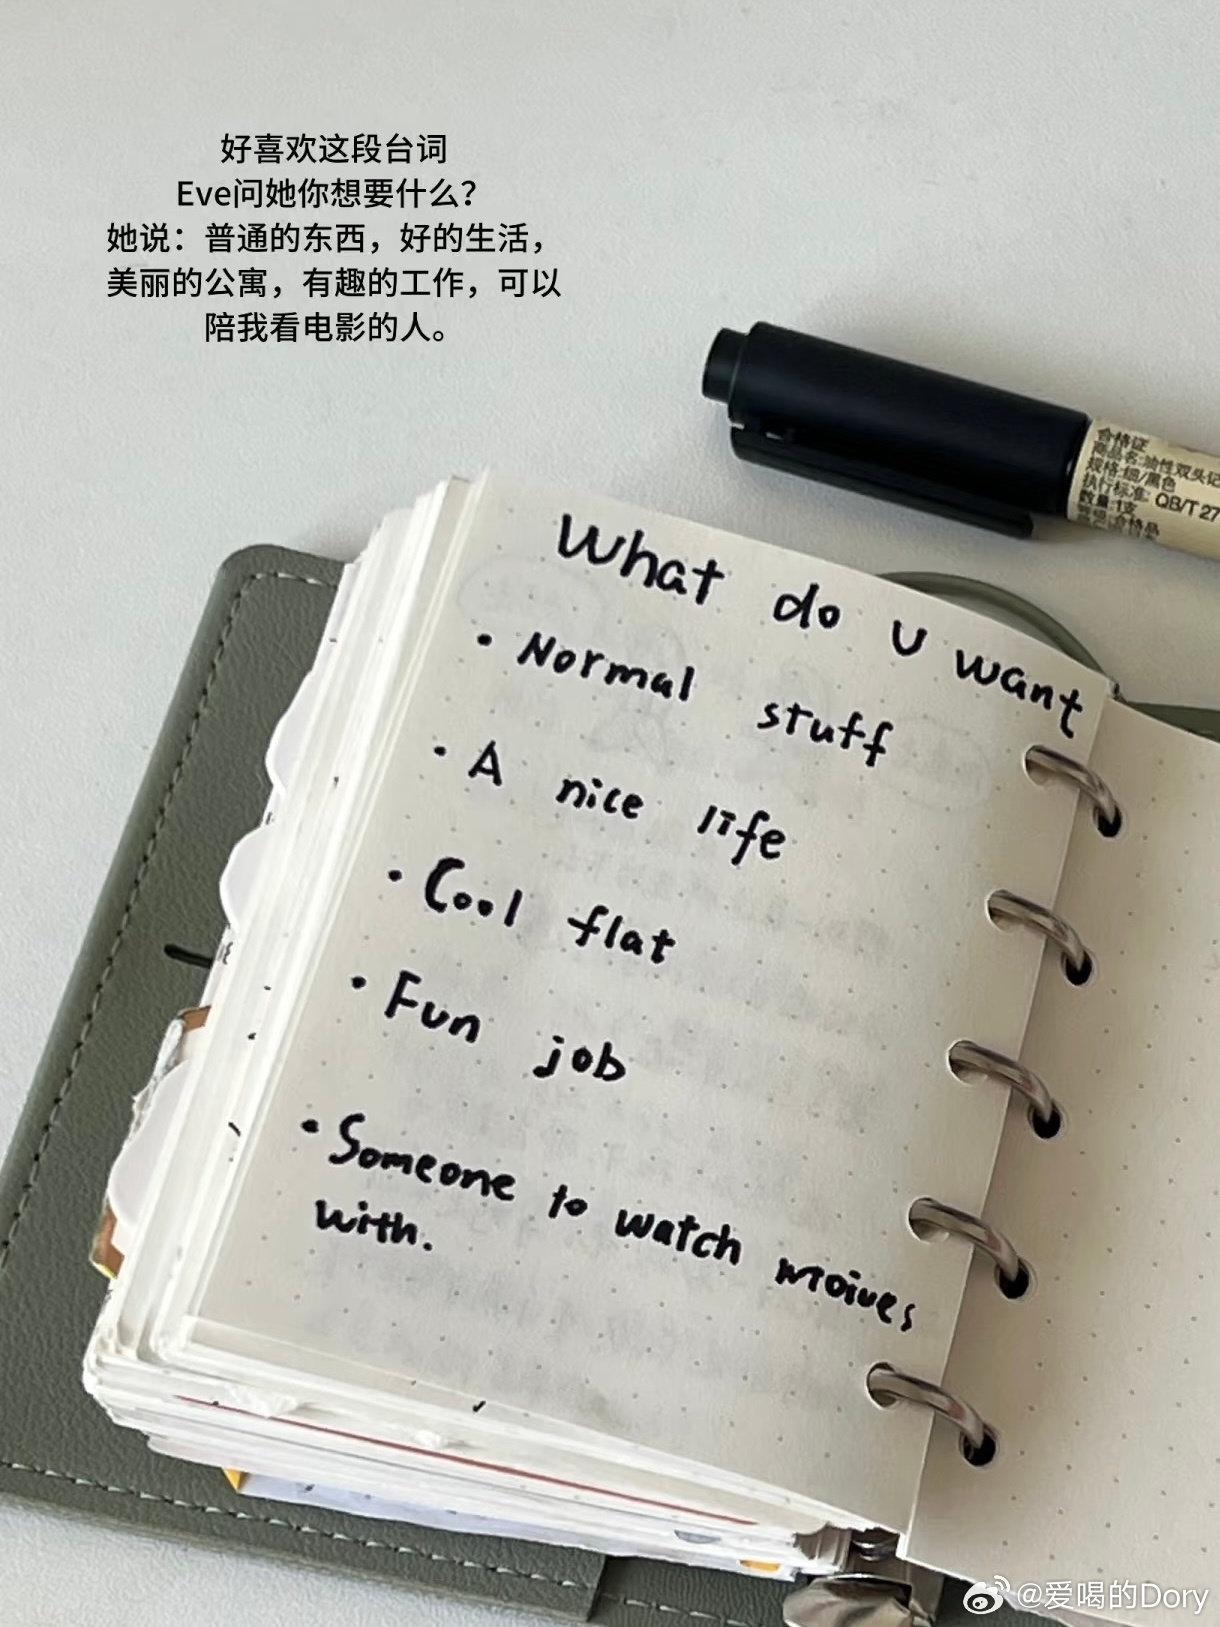 好喜欢这段台词
Eve问她你想要什么？
她说：普通的东西，好的生活，
美丽的公寓，有趣的工作，可以
陪我看电影的人。
合格证
商品名:油性双头记
规格:细/黑色
执行标准: QB/T 27
数量:1支
What do u want
• Normal stuff
• A nice life
• Cool flat
• Fun job
• Someone to watch moives
with.
@爱喝的Dory